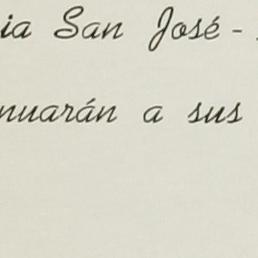 ia San José -
nuarán a sus